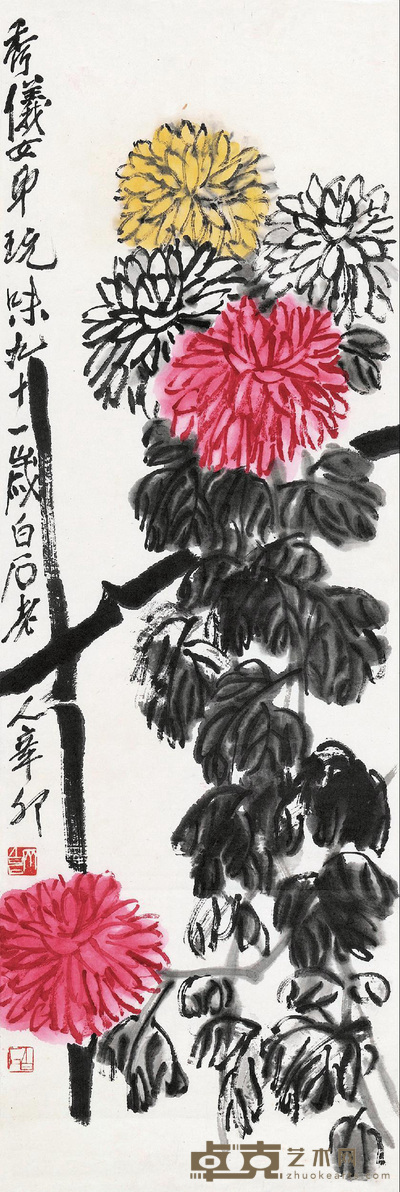 秀儀女弟玩味九十一歲白石老人辛卯
卓克艺术网
zhuokearts.com